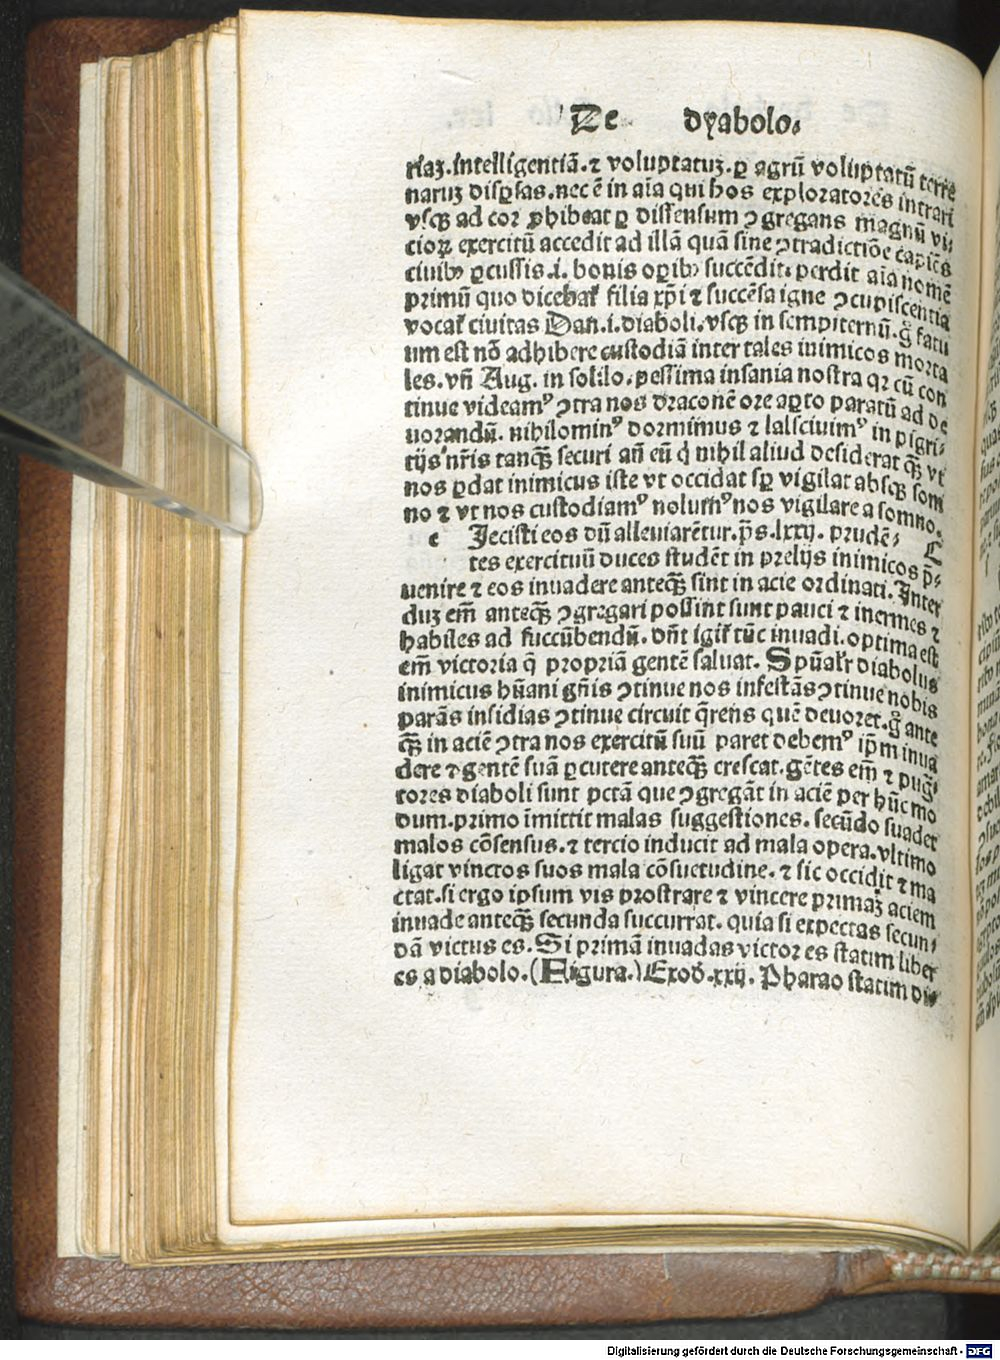 De dyabolo.
riaꝫ. intelligentiā. ⁊ voluptatuꝫ. ꝑ agrū voluptatū terre
naruꝫ disꝑsas. nec ē in aīa qui hos exploratores intrari
vsqꝫ ad cor ꝓhibeat ꝑ dissensum ꝯgregans magnū vi-
cioꝝ exercitū accedit ad illā quā sine ꝯtradictiōe capiēs
ciuibꝰ ꝑcussis .i. bonis oꝑibꝰ succēdit. perdit aīa nomē
primū quo dicebat᷑ filia xp̄i ⁊ succēsa igne ꝯcupiscentia
vocat᷑ ciuitas Dan .i. diaboli. vsqꝫ in sempiternū. g̊ fatu
um est nō adhibere custodiā inter tales inimicos morta
les. vn̄ Aug. in solilo. pessima insania nostra qꝛ cū con
tinue videamꝰ ꝯtra nos draconē ore aꝑto paratū ad de
uorandū. nihilominꝰ dormimus ⁊ lasciuimꝰ in pigri-
tijs nr̄is tanqꝫ̄ securi an̄ eū q̇ nihil aliud desiderat qꝫ̄ vt
nos ꝑdat inimicus iste vt occidat sꝑ vigilat absqꝫ som
no ⁊ vt nos custodiamꝰ nolumꝰ nos vigilare a somno.
e Iecisti eos dū alleuiarētur. p̄s. lxxij. prudē- C
tes exercituū duces studēt in prelijs inimicos p̄-
uenire ⁊ eos inuadere anteqꝫ̄ sint in acie ordinati. Inter
duꝫ em̄ anteqꝫ̄ ꝯgregari possint sunt pauci ⁊ inermes ⁊
habiles ad succūbendū. dn̄t igit᷑ tūc inuadi. optima est
em̄ victoria q̄ propriā gentē saluat. Spūalr̄ diabolus
inimicus hūani gn̄is ꝯtinue nos infestās ꝯtinue nobis
parās insidias ꝯtinue circuit q̄rens quē deuoret. g̊ ante
qꝫ̄ in aciē ꝯtra nos exercitū suū paret debemꝰ ip̄m inua
dere ⁊ gentē suā ꝑcutere anteqꝫ̄ crescat. gētes em̄ ⁊ puḡ-
tores diaboli sunt pctā que ꝯgregāt in aciē per hūc mo
dum. primo īmittit malas suggestiones. secūdo suadet
malos cōsensus. ⁊ tercio inducit ad mala opera. vltimo
ligat vinctos suos mala cōsuetudine. ⁊ sic occidit ⁊ ma
ctat. si ergo ipsum vis prostrare ⁊ vincere primaꝫ aciem
inuade anteqꝫ̄ secunda succurrat. quia si expectas secun-
dā victus es. Si primā inuadas victor es statim liber
es a diabolo. (Figura.) Exod. xxij. Pharao statim
Digitalisierung gefördert durch die Deutsche Forschungsgemeinschaft - DFG